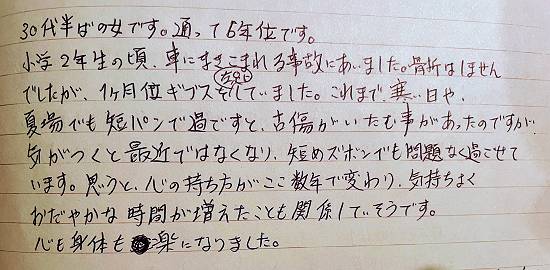 30代半ばの女です。通って6年位です。
小学2年生の頃、車にまきこまれる事故にあいました。骨折はしません
でしたが、1ヶ月位ギプスをしていました。これまで、寒い日や、
夏場でも短パンで過ですと、古傷がいたむ事があったのですが、
気がつくと最近ではなくなり、短めズボンでも問題なく過ごせて
います。思うと、心の持ち方がここ数年で変わり、気持ちよく
おだやかな時間が増えたことも関係していそうです。
心も身体も楽になりました。